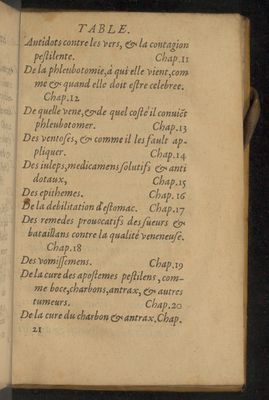 TABLE.
Antidots contre les vers, & la contagion
pestilente. Chap.11
De la phlebotomie, à qui elle vient, com
me & quand elle doit estre celebree.
Chap.12
De quelle vene, & de quel costé il convíẽt
phleubotomer. Chap.13
Des ventoses, & comme il les fault ap-
pliquer. Chap.14
Des iuleps, medicamens solutifs & anti
dotaux, Chap.15
Des epithemes. Chap. 16
De la debilitation d'estomac. Chap.17
Des remedes prouocatifs des sueurs &
bataillans contre la qualité veneneuse.
Chap.18
Des vomissemens. Chap.19
De la cure des apostemes pestilens, com-
me boce, charbons, antrax, & autres
tumeurs. Chap.20
De la cure du charbon & antrax. Chap.
21